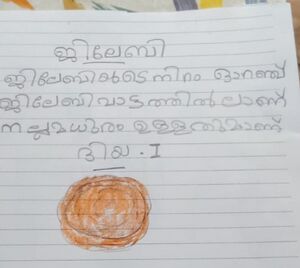 ജിലേബി
ജിലേബിയുടെ നിറം ഓറഞ്ച്
ജിലേബി വാട്ടത്തിൽ ലാണ്
നല്ല മധുരം ഉള്ളതുമാണ്
ദിയ . I